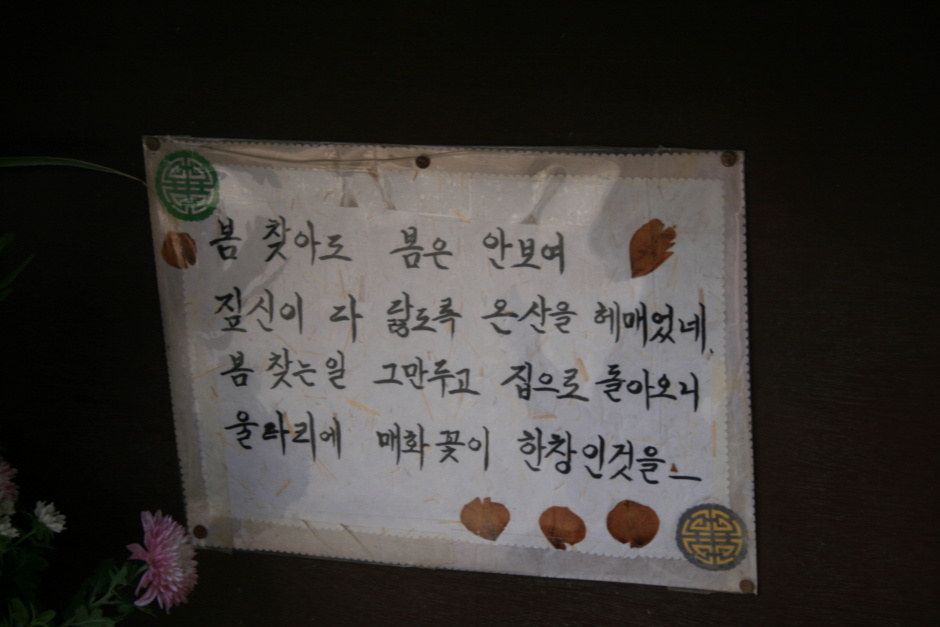 봄 찾아도 봄은 안보여
짚신이 다 닳도록 온산을 헤매었네.
봄 찾는일 그만두고 집으로 돌아오니
울타리에 매화꽃이 한창인것을_